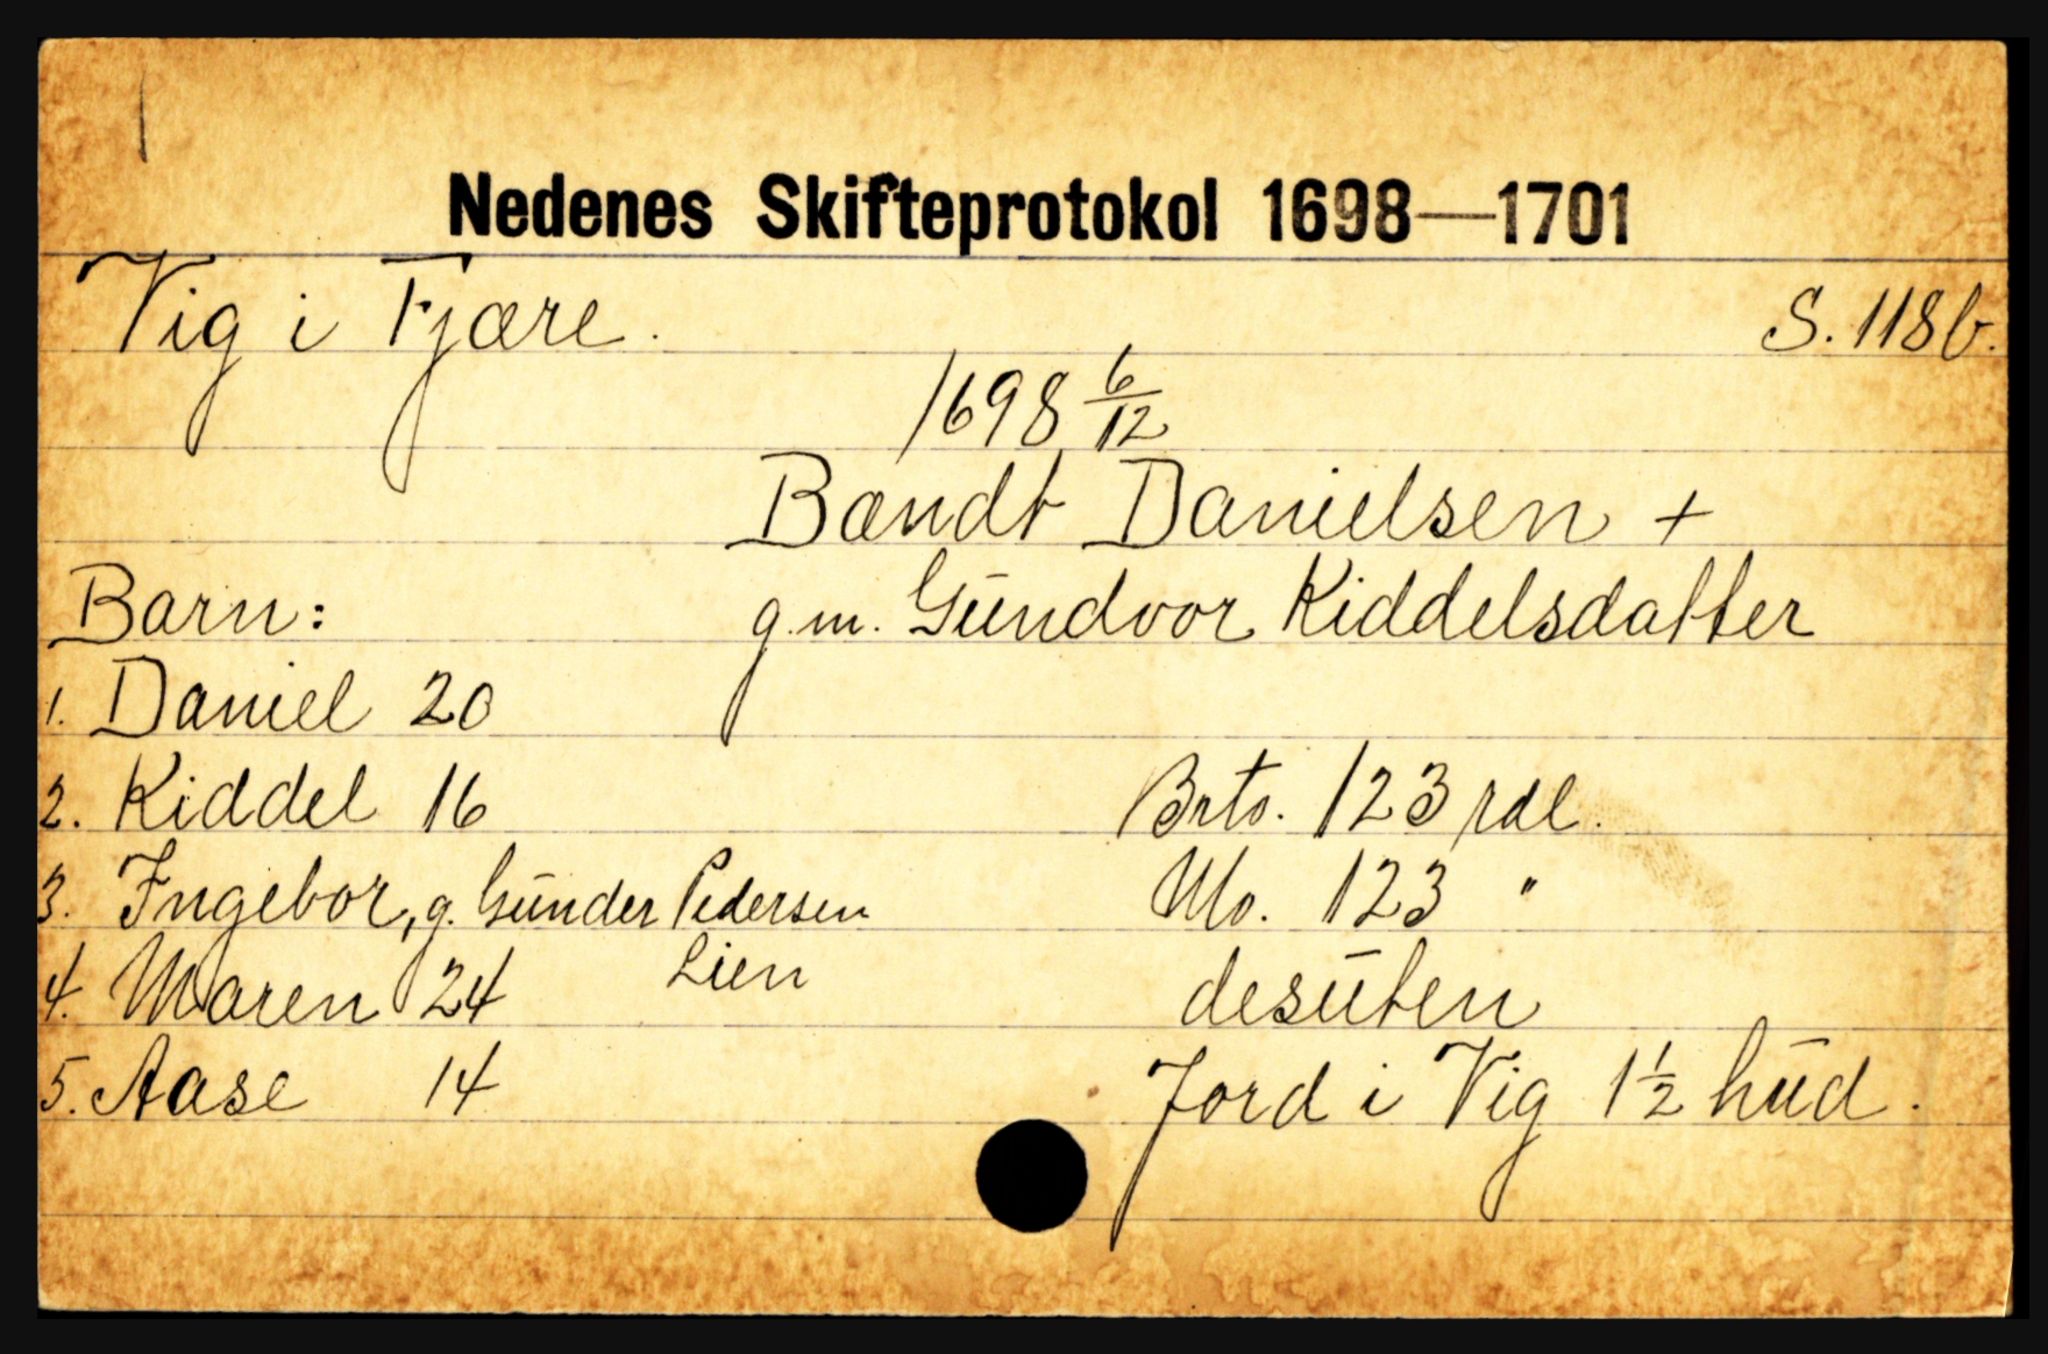 Nedenes Skifteprotokol 1698—1701
Vig i Fjære.
S. 118b.
1698 6/12
Bændt Danielsen +
g.m. Gūndvor Kiddelsdatter
Barn:
1. Daniel 20
2. Kiddel 16
3. Ingebor, g. Gūnder Pedersen
Lien
4. Maren 24
5. Aase 14
Brto. 123 rdl.
Nto. 123 "
desūten
Jord i Vig 1 1/2 hūd.